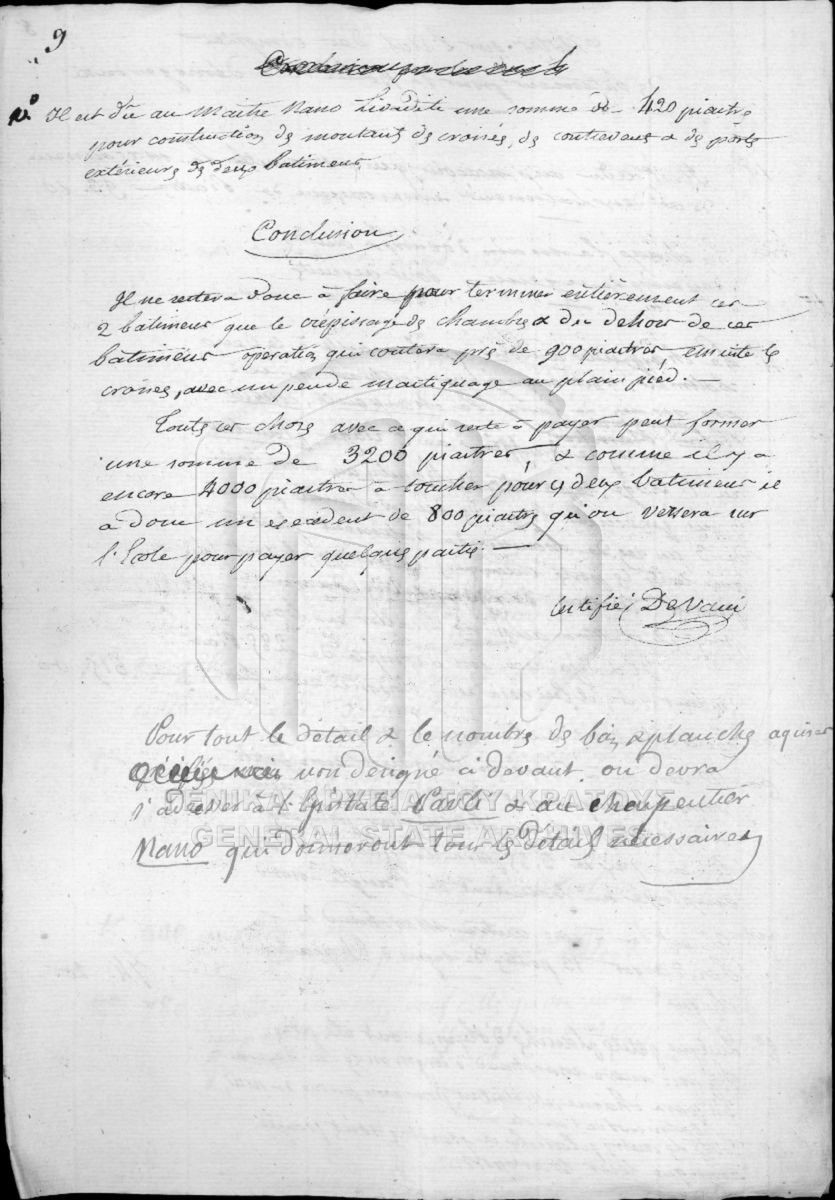 9
Il est dû au Maitre Nano une somme de 420 piastres
pour construction de montants de croisés, de contrevens & de portes
extérieures des deux batimens.
Conclusion
Il ne restera donc à faire pour terminer entièrement ces
2 batimens que le crépissage des chambres & du dehors de ces
batimens operation qui coutera près de 900 piastres, ensuite les
croisés, avec un peu de mastiquage au plain pièd. —
Touts ces choses avec ce qui reste à payer peut former
une somme de 3200 piastres & comme il y a
encore 4000 piastres à toucher pour ces deux batimens il y
a donc un excédent de 800 piastres qu'on versera sur
l'Ecole pour payer quelques parties. —
Certifié Devaui
Pour tout le détail & le nombre de bois & planches aquises
non designé ci devant, on devra
s'adresser à l'Epistate Pavli & au charpentier
Nano qui donneront tous les détails nécessaires
ΓΕΝΙΚΑ ΑΡΧΕΙΑ ΤΟΥ ΚΡΑΤΟΥΣ
GENERAL STATE ARCHIVES